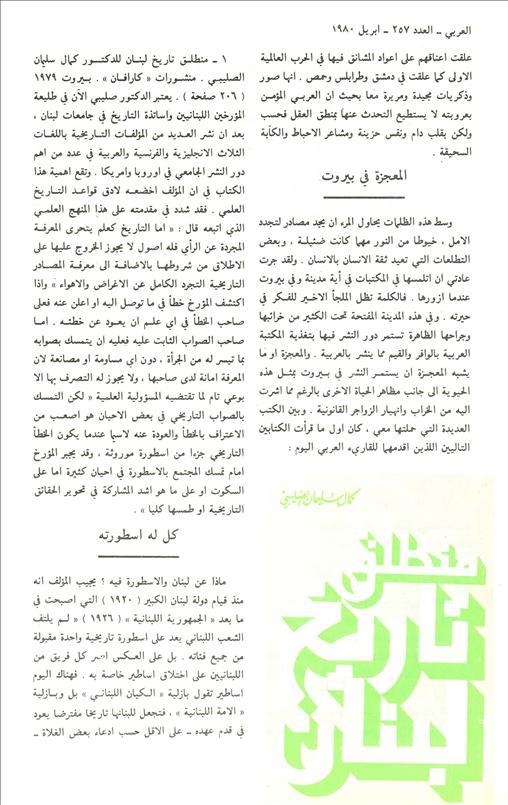 العربي ــ العدد ٢٥٧ ــ ابريل ١٩٨٠
علقت اعناقهم على اعواد المشانق فيها في الحرب العالمية
الاولى كما علقت في دمشق وطرابلس وحمص . انها صور
وذكريات مجيدة ومريرة معا بحيث ان العربي المؤمن
بعروبته لا يستطيع التحدث عنها بمنطق العقل فحسب
ولكن بقلب دام ونفس حزينة ومشاعر الاحباط والكآبة
السحيقة .
المعجزة في بيروت
وسط هذه الظلمات يحاول المرء ان يجد مصادر لتجدد
الامل ، خيوطا من النور مهما كانت ضئيلة ، وبعض
التطلعات التي تعيد ثقة الانسان بالانسان . ولقد جرت
عادتي ان اتلمسها في المكتبات في أية مدينة وفي بيروت
عندما ازورها . فالكلمة تظل الملجأ الاخير للفكر في
حيرته . وفي هذه المدينة المفتحة تحت الكثير من خرائبها
وجراحها الظاهرة تستمر دور النشر فيها بتغذية المكتبة
العربية بالوافر والقيم مما ينشر بالعربية . والمعجزة او ما
يشبه المعجزة ان يستمر النشر في بيروت بمثل هذه
الحيوية الى جانب مظاهر الحياة الاخرى بالرغم مما اشرت
اليه من الخراب وانهيار الزواجر القانونية . وبين الكتب
العديدة التي حملتها معي ، كان اول ما قرأت الكتابين
التاليين اللذين اقدمهما للقاريء العربي اليوم :
كمال سليمان الصليبي
منطلق
تاريخ
لبنان
١ ــ منطلق تاريخ لبنان للدكتور كمال سليمان
الصليبي . منشورات « كارافان » . بيروت ١٩٧٩
( ٢٠٦ صفحة ) . يعتبر الدكتور صليبي الآن في طليعة
المؤرخين اللبنانيين واساتذة التاريخ في جامعات لبنان ،
بعد ان نشر العديد من المؤلفات التاريخية باللغات
الثلاث الانجليزية والفرنسية والعربية في عدد من اهم
دور النشر الجامعي في اوروبا وامريكا . وتقع اهمية هذا
الكتاب في ان المؤلف اخضعه لادق قواعد التاريخ
العلمي . فقد شدد في مقدمته على هذا المنهج العلمي
الذي اتبعه قال : « اما التاريخ كعلم يتحرى المعرفة
المجردة عن الرأي فله اصول لا يجوز الخروج عليها على
الاطلاق من شروطها بالاضافة الى معرفة المصادر
التاريخية التجرد الكامل عن الاغراض والاهواء » واذا
اكتشف المؤرخ خطأ في ما توصل اليه او اعلن عنه فعلى
صاحب الخطأ في اي علم ان يعود عن خطئه . اما
صاحب الصواب الثابت عليه فعليه ان يتمسك بصوابه
بما تيسر له من الجرأة ، دون اي مساومة او مصانعة لان
المعرفة امانة لدى صاحبها ، ولا يجوز له التصرف بها الا
بوعي تام لما تقتضيه المسؤولية العلمية » لكن التمسك
بالصواب التاريخي في بعض الاحيان هو اصعب من
الاعتراف بالخطأ والعودة عنه لاسيما عندما يكون الخطأ
التاريخي جزءا من اسطورة موروثة ، وقد يجبر المؤرخ
امام تمسك المجتمع بالاسطورة في احيان كثيرة اما على
السكوت او على ما هو اشد المشاركة في تحوير الحقائق
التاريخية او طمسها كليا » .
كل له اسطورته
ماذا عن لبنان والاسطورة فيه ؟ يجيب المؤلف انه
منذ قيام دولة لبنان الكبير ( ١٩٢٠ ) التي اصبحت في
ما بعد « الجمهورية اللبنانية » ( ١٩٢٦ ) « لم يلتف
الشعب اللبناني بعد على اسطورة تاريخية واحدة مقبولة
من جميع فئاته . بل على العكس اصر كل فريق من
اللبنانيين على اختلاق اساطير خاصة به . فهناك اليوم
اساطير تقول بازلية « الكيان اللبناني » بل وبازلية
« الامة اللبنانية » ، فتجعل للبنانها تاريخا مفترضا يعود
في قدم عهده ــ على الاقل حسب ادعاء بعض الغلاة ــ